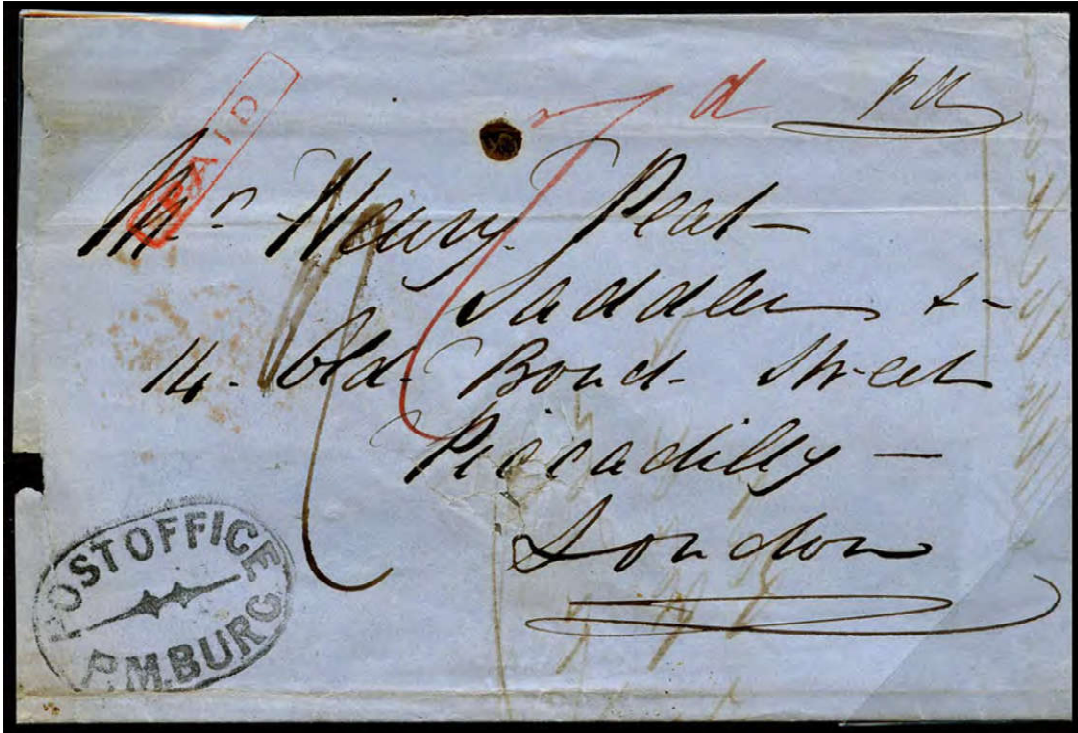 PAID
d pd
Mr. Henry. Peat -
Saddler & -
14. Old. Bond. Street
Piccadilly -
London
POST OFFICE
P.M.BURG